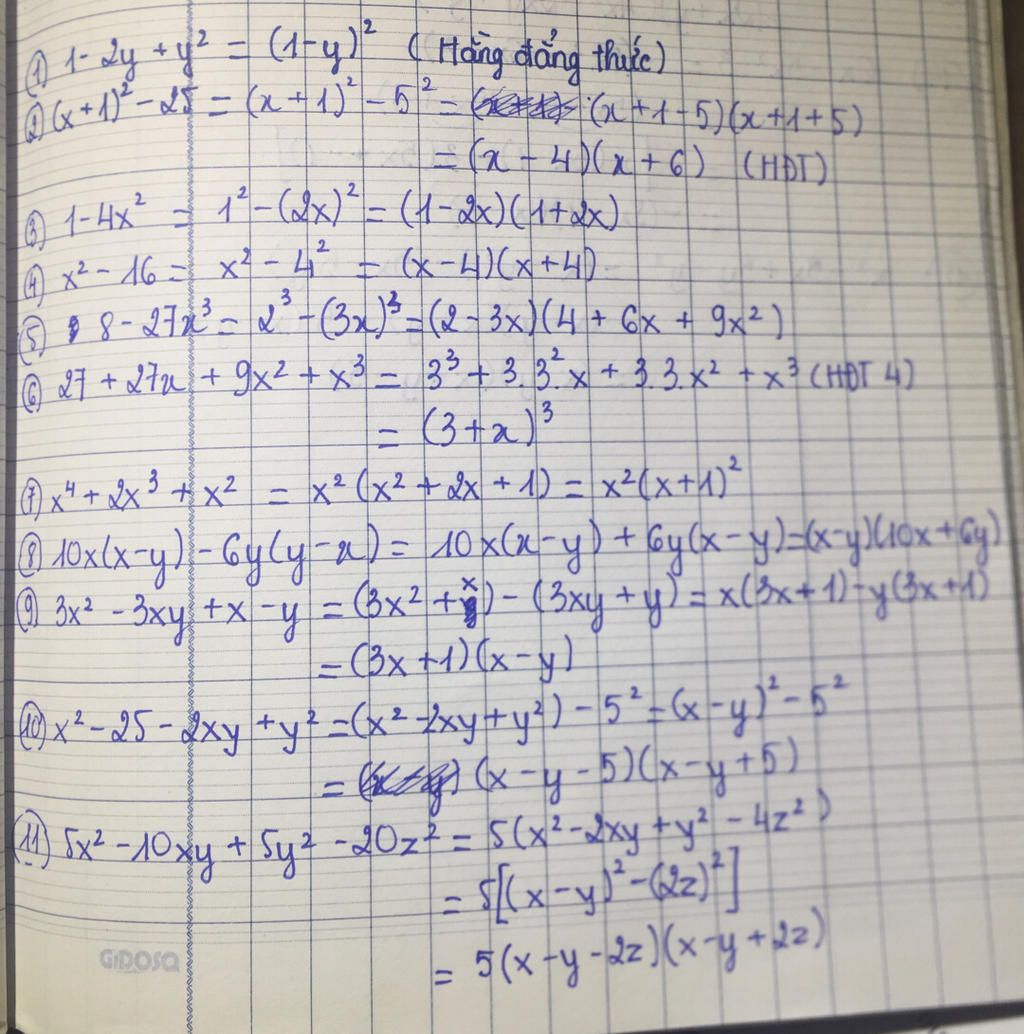 ① 1 - 2y + y² = (1-y)² (Hằng đẳng thức)
② (x+1)² - 25 = (x+1)² - 5² = (x+1-5)(x+1+5)
= (x-4)(x+6) (HĐT)
③ 1-4x² = 1² - (2x)² = (1-2x)(1+2x)
④ x² - 16 = x² - 4² = (x-4)(x+4)
⑤ 8 - 27x³ = 2³ - (3x)³ = (2-3x)(4 + 6x + 9x²)
⑥ 27 + 27x + 9x² + x³ = 3³ + 3.3².x + 3.3.x² + x³ (HĐT 4)
= (3+x)³
⑦ x⁴ + 2x³ + x² = x²(x² + 2x + 1) = x²(x+1)²
⑧ 10x(x-y) - 6y(y-x) = 10x(x-y) + 6y(x-y) = (x-y)(10x+6y)
⑨ 3x² - 3xy + x - y = (3x² + x) - (3xy + y) = x(3x+1) - y(3x+1)
= (3x+1)(x-y)
⑩ x² - 25 - 2xy + y² = (x² - 2xy + y²) - 5² = (x-y)² - 5²
= (x-y-5)(x-y+5)
⑪ 5x² - 10xy + 5y² - 20z² = 5(x² - 2xy + y² - 4z²)
= 5[(x-y)² - (2z)²]
= 5(x-y-2z)(x-y+2z)
GIDOSA